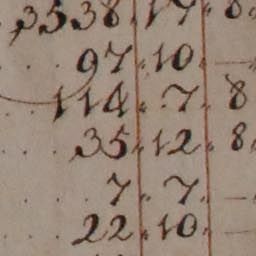 3538. 17. 8.
97. 10. —
114. 7. 8
35. 12. 8.
7. 7. —
22. 10. —